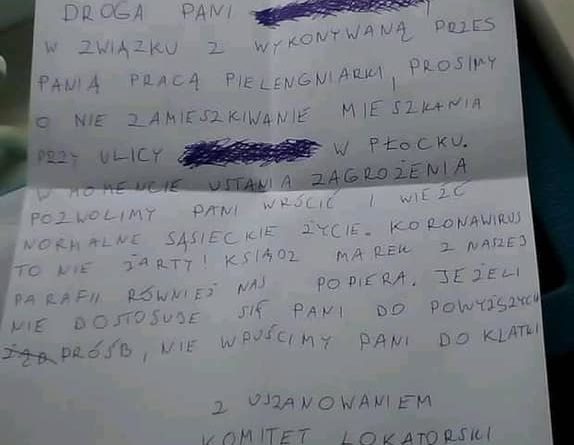 DROGA PANI
W ZWIĄZKU Z WYKONYWANĄ PRZES
PANIĄ PRACĄ PIELENGNIARKI, PROSIMY
O NIE ZAMIESZKIWANIE MIESZKANIA
PRZY ULICY W PŁOCKU.
W MOMENCIE USTANIA ZAGROŻENIA
POZWOLIMY PANI WRÓCIĆ I WIEŹĆ
NORMALNE SĄSIECKIE ŻYCIE. KORONAWIRUS
TO NIE ŻARTY! KSIĄDZ MAREK Z NASZEJ
PARAFII RÓWNIEŻ NAS POPIERA. JEŻELI
NIE DOSTOSUJE SIĘ PANI DO POWYŻSZYCH
PRÓŚB, NIE WPUŚCIMY PANI DO KLATKI
Z USZANOWANIEM
KOMITET LOKATORSKI